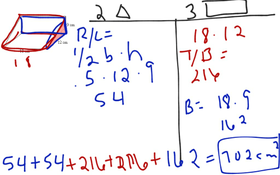 2 △
3 ▭
R/L=
1/2 b · h
.5 · 12 · 9
54
18 · 12
T/B =
216
B = 18 · 9
162
18
54+54+216+216+162 = 702 cm²